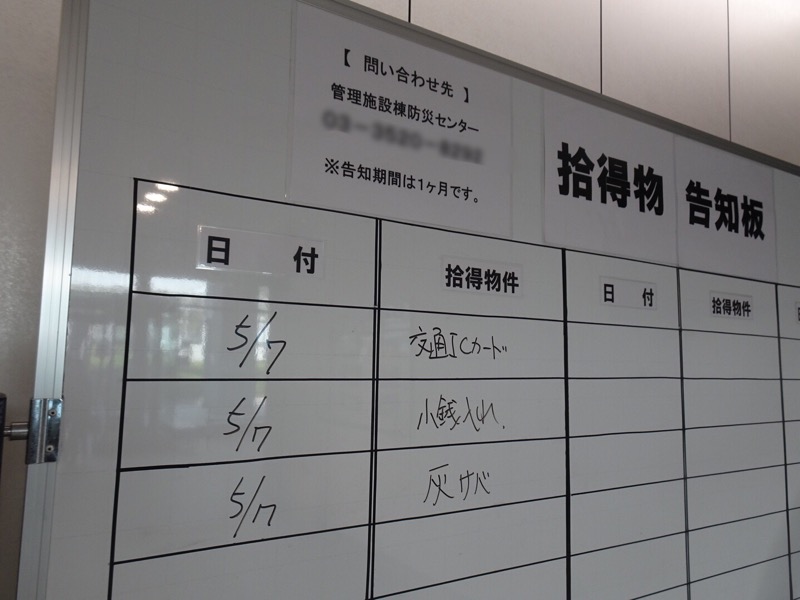 【 問い合わせ先 】
管理施設棟防災センター
※告知期間は1ヶ月です。
拾得物 告知板
日 付 拾得物件 日 付 拾得物件
5/7 交通ICカード
5/7 小銭入れ.
5/7